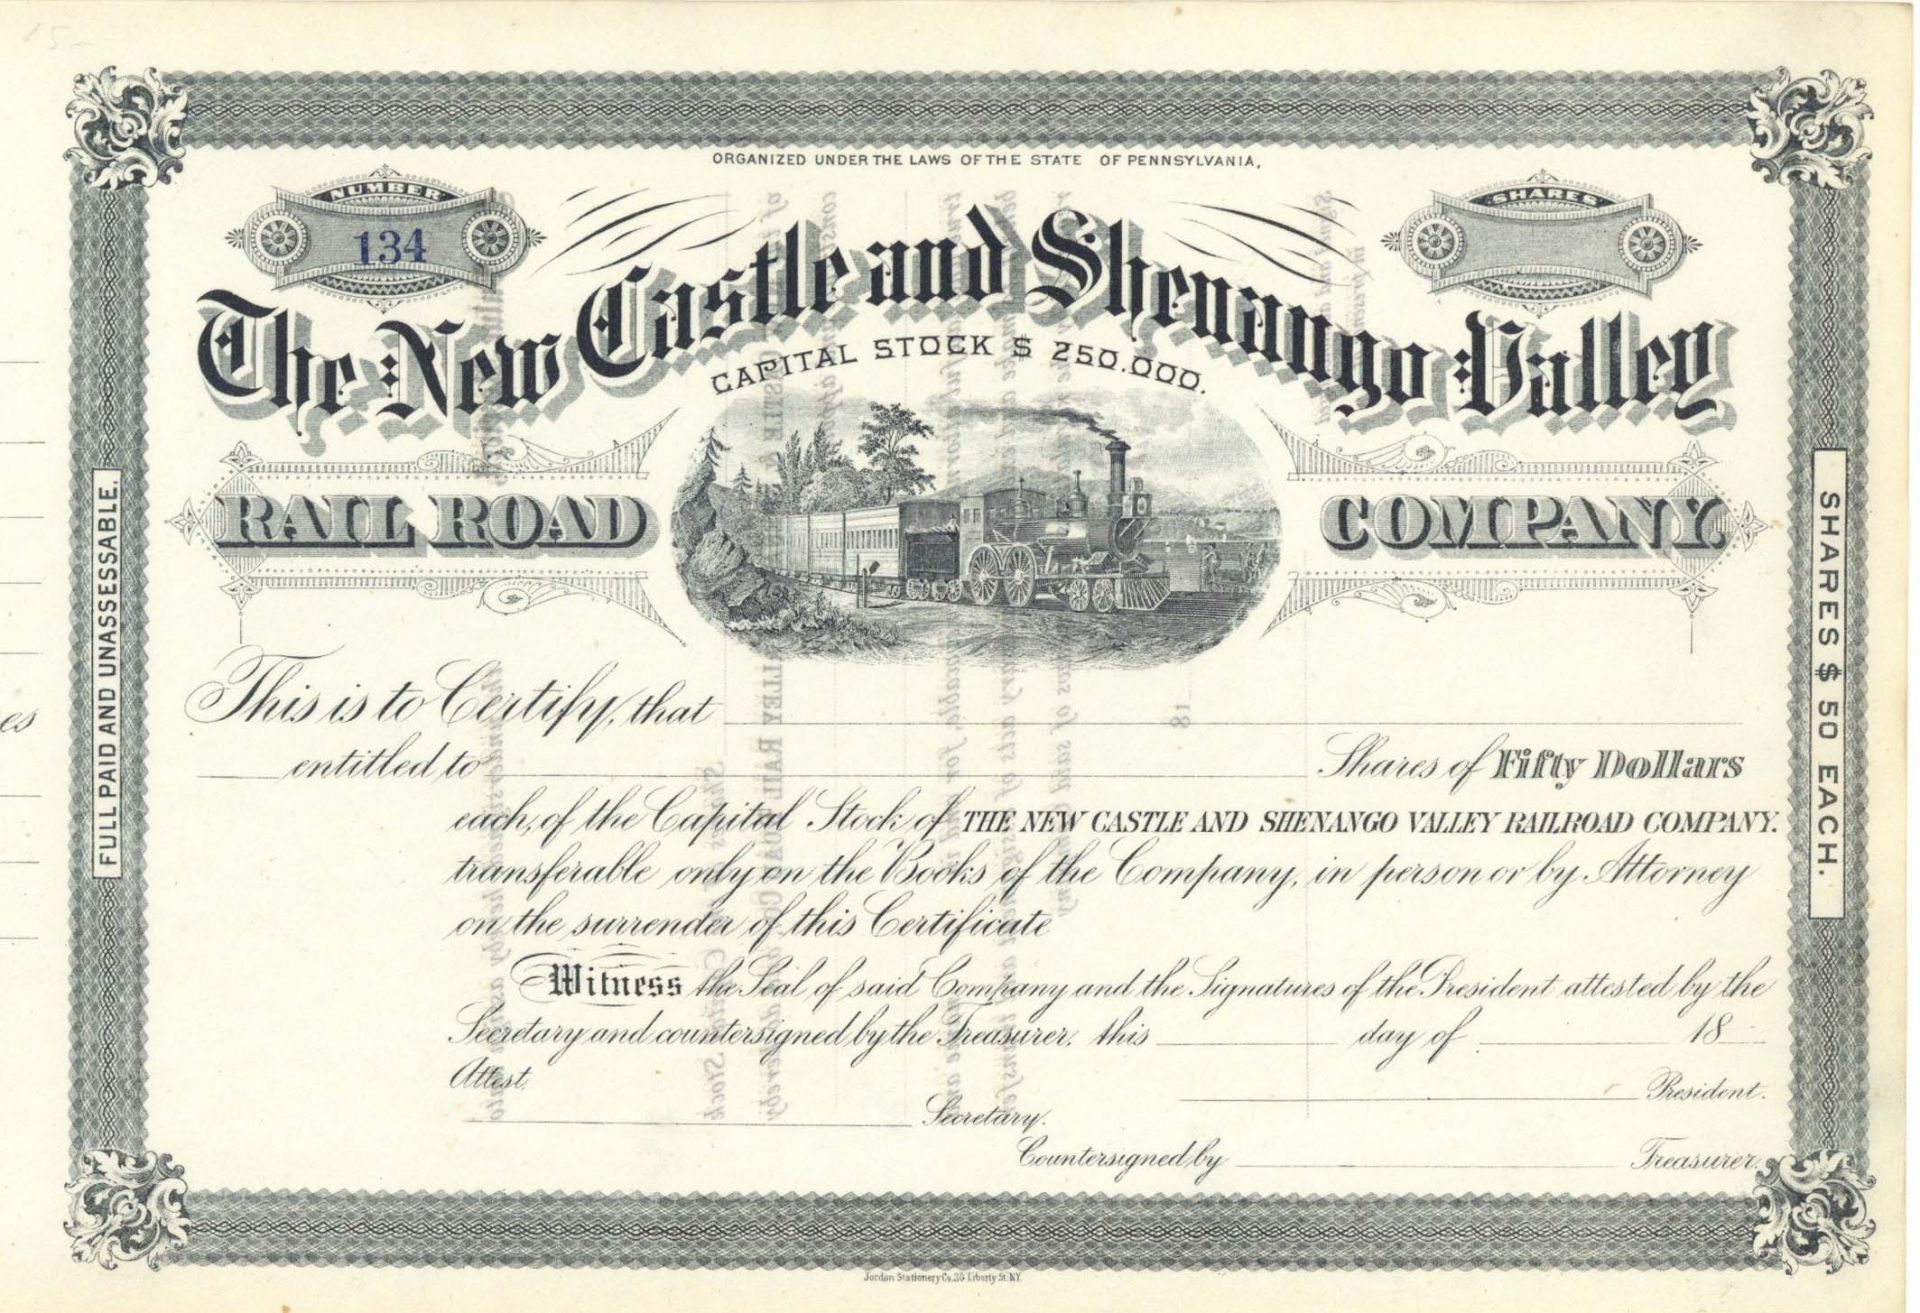 ORGANIZED UNDER THE LAWS OF THE STATE OF PENNSYLVANIA,
NUMBER
134
SHARES
The New Castle and Shenango Valley
CAPITAL STOCK $ 250.000.
RAIL ROAD COMPANY.
FULL PAID AND UNASSESSABLE.
SHARES $ 50 EACH.
es
This is to Certify, that
entitled to Shares of Fifty Dollars
each, of the Capital Stock of THE NEW CASTLE AND SHENANGO VALLEY RAILROAD COMPANY.
transferable only on the Books of the Company, in person or by Attorney
on the surrender of this Certificate
Witness the Seal of said Company and the Signatures of the President attested by the
Secretary and countersigned by the Treasurer, this day of 18
Attest.
President.
Secretary.
Countersigned by Treasurer.
Jordan Stationery Co. 30 Liberty St. NY